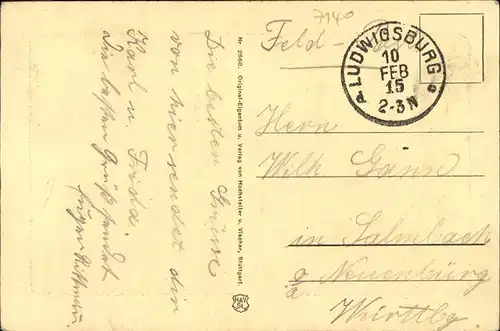 7140
Feld-
LUDWIGSBURG
10
FEB
15
2-3 N
Herrn
Wilh. Gann
in Salmbach
o/a Neuenbürg
Württbg
Nr. 2660. Original-Eigentum u. Verlag von Hochstetter u. Vischer, Stuttgart.
Die besten Grüße
von hier sendet dir
Karl u. Frida.
Die besten Grüße sendet
Eugen